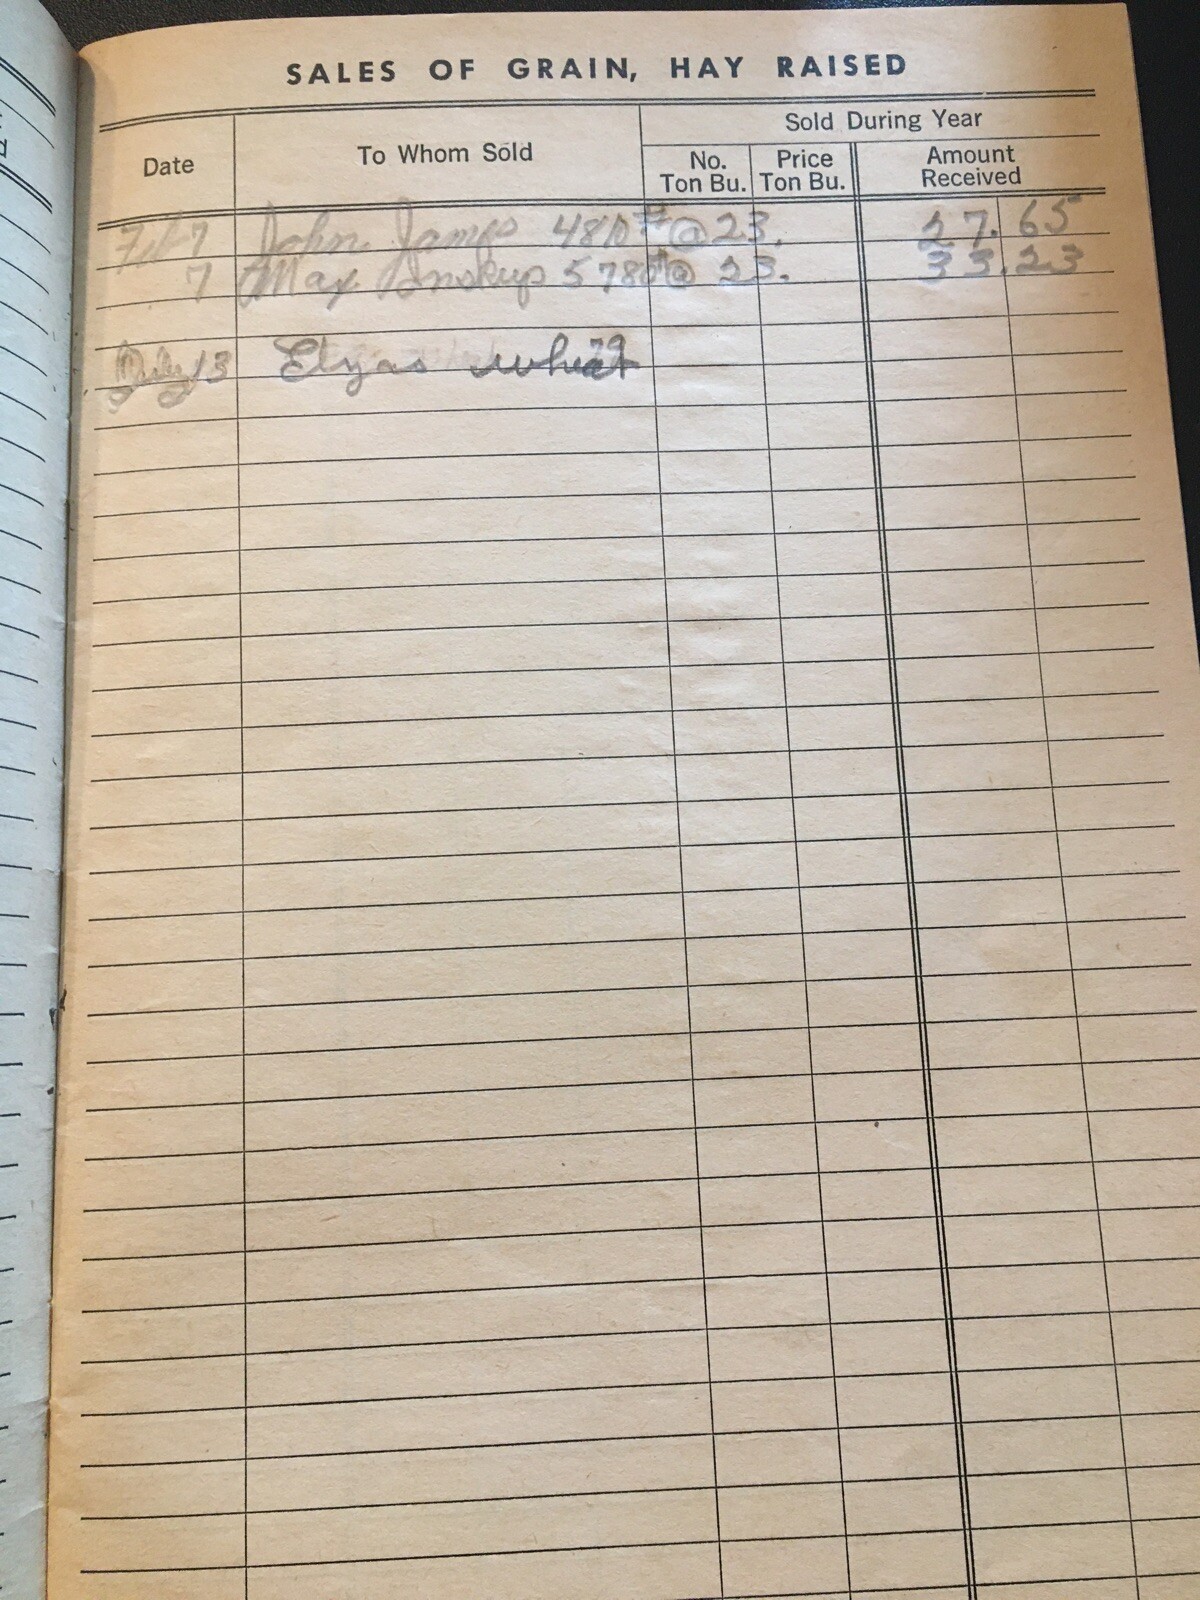 SALES OF GRAIN, HAY RAISED
Sold During Year
Date To Whom Sold No. Ton Bu. Price Ton Bu. Amount Received
John James 4810# @ 23. 27.65
7 Max Inskeep 5780# @ 23. 33.23
July 13 Elyas wheat 79